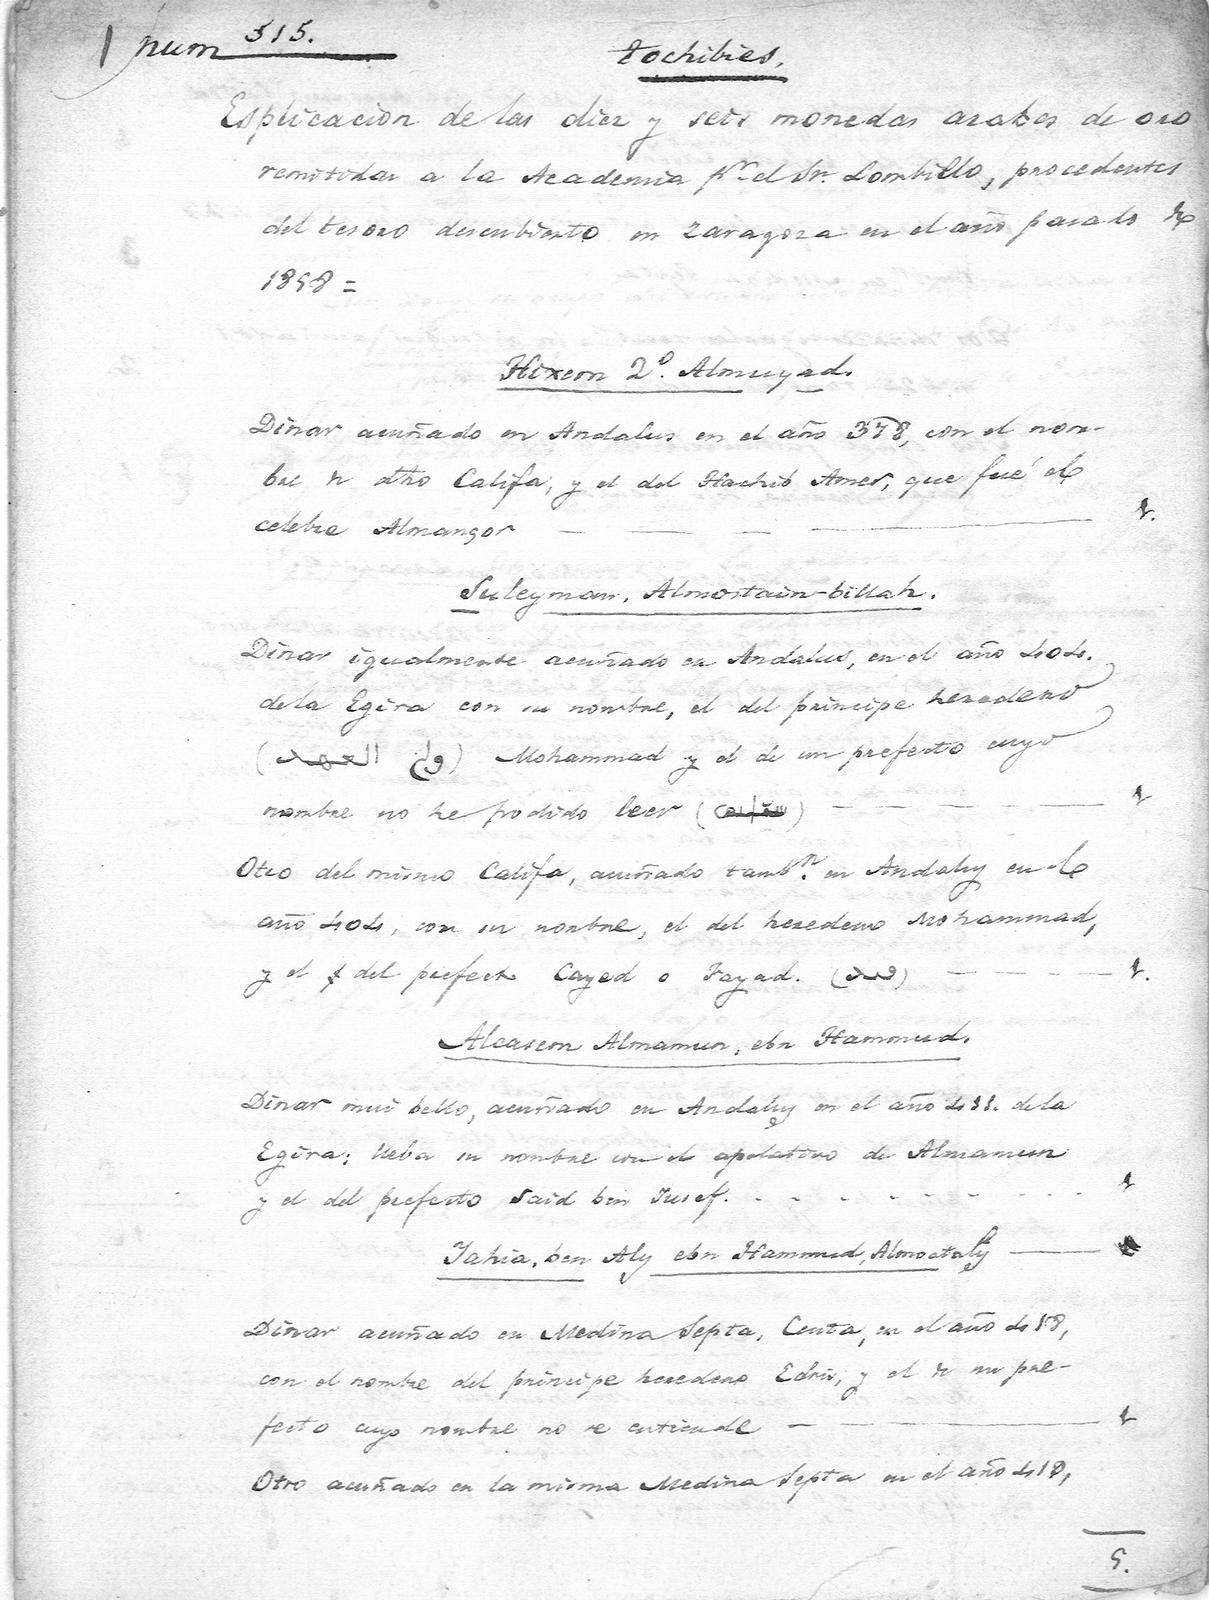 num 515.
tochibies.
Esplicacion de las diez y seis monedas arabes de oro
remitidas a la Academia pr. el Sr. Lombillo, procedentes
del tesoro descubierto en Zaragoza en el año pasado de
1858 =
Hixem 2º. Almuyad.
Dinar acuñado en Andalus en el año 378, con el nom-
bre de dho Califa, y el del Hachib Amer, que fué el
celebre Almançor — — — — 1.
Suleyman, Almostain-billah.
Dinar igualmente acuñado en Andalus, en el año 404.
de la Egira con su nombre, el del principe heredero
(ولي العهد) Mohammad y el de un prefecto cuyo
nombre no he podido leer ( ) — — — — 1
Otro del mismo Califa, acuñado tambn. en Andalus en el
año 404, con su nombre, el del heredero Mohammad,
y el del prefecto Cayed o Fayad. ( ) — — 1.
Alcasem Almamun, ebn Hammud.
Dinar mui bello, acuñado en Andalus en el año 411. de la
Egira; lleba su nombre con el apelativo de Almamun
y el del prefecto Said ben Iusef. - - - - - - - - 1
Iahia, ben Aly ebn Hammud, Almoctaly —
Dinar acuñado en Medina Septa, Ceuta, en el año 418,
con el nombre del principe heredero Edris, y el de un pre-
fecto cuyo nombre no se entiende — — 1
Otro acuñado en la misma Medina Septa en el año 418,
5.